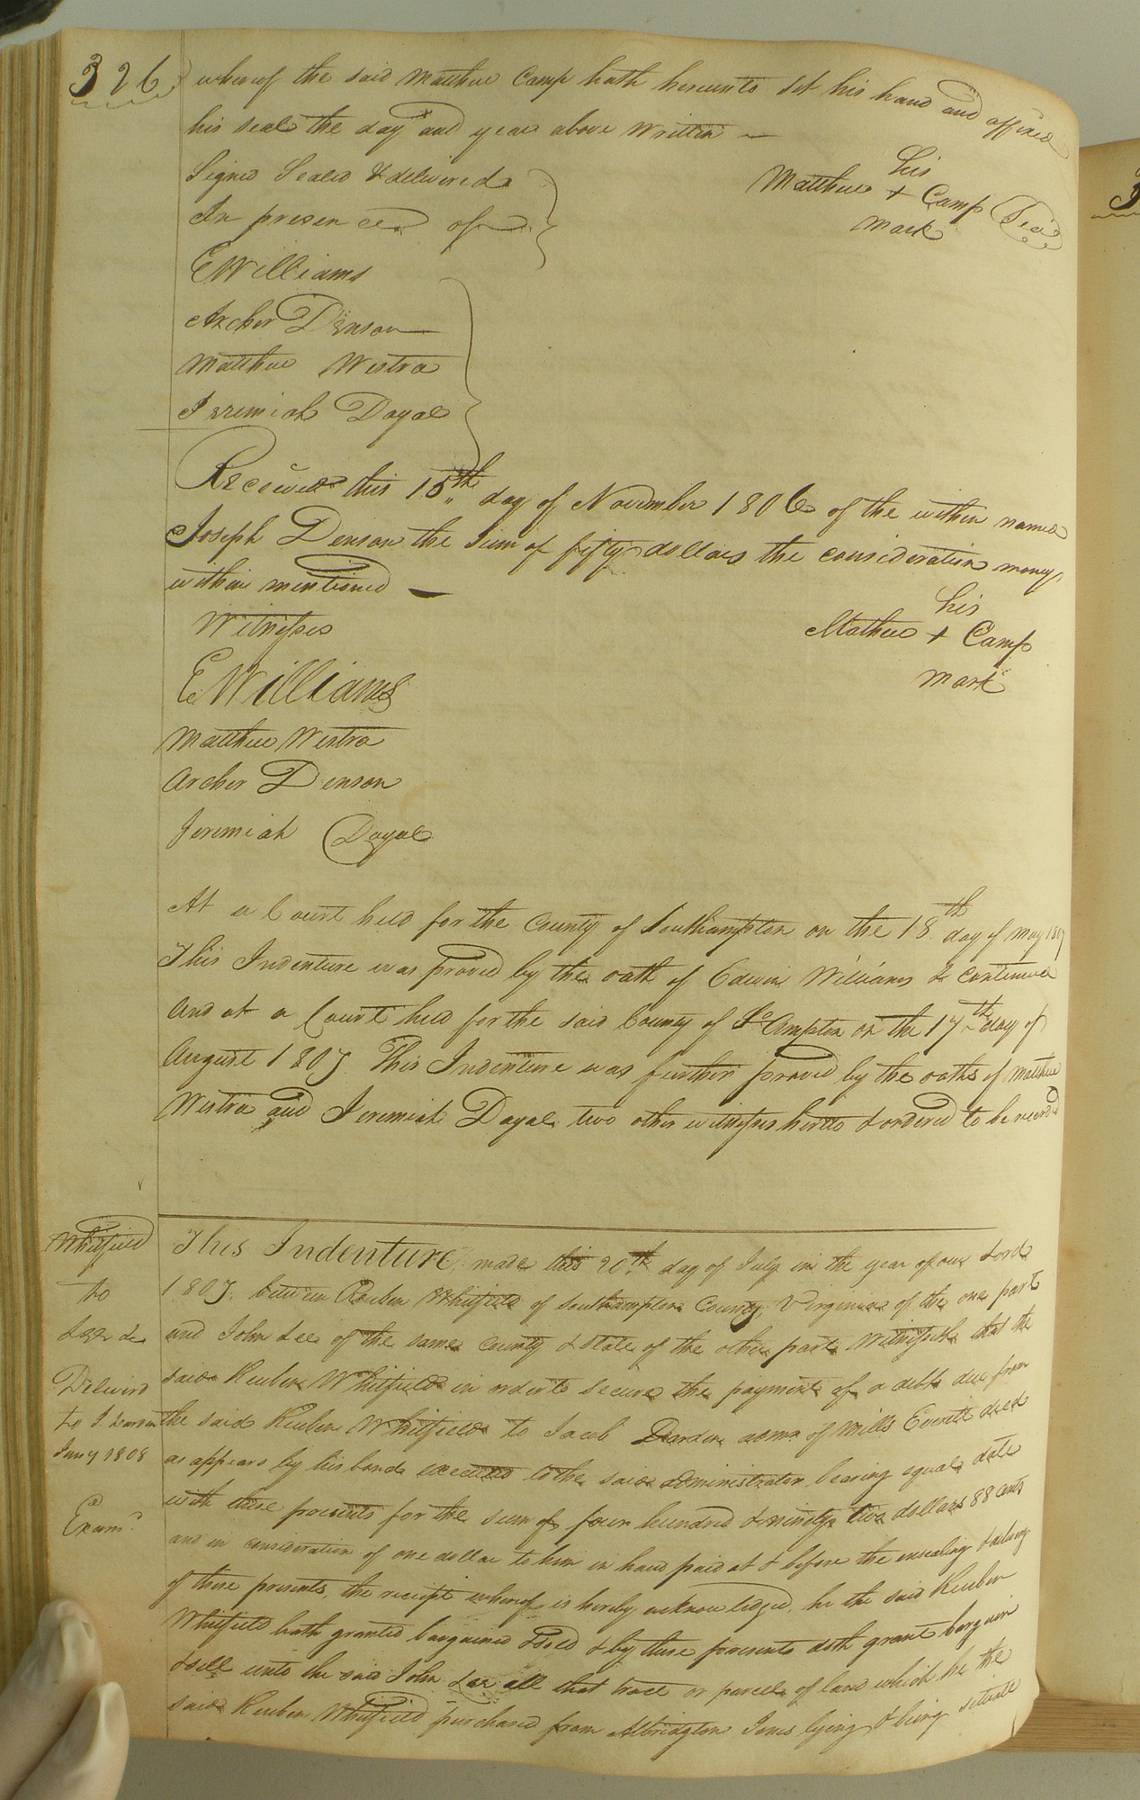 326
whereof the said Matthew Camp hath hereunto set his hand and affixed
his seal the day and year above written
Signed Sealed & delivered
In presence of
his
Matthew + Camp Seal
mark
E Williams
Archer Denson
Matthew Westra
Jeremiah Doyal
Received this 15th day of November 1806 of the within named
Joseph Denson the Sum of fifty dollars the consideration money
within mentioned
Witnesses
his
Mathew + Camp
mark
E Williams
Matthew Westra
Archer Denson
Jeremiah Doyal
At a Court held for the County of Southampton on the 18th day of May 1807
This Indenture was proved by the oath of Edwin Williams & continued
And at a Court held for the said County of So Ampton on the 17th day of
August 1807. This Indenture was further proved by the oaths of Matthew
Westra and Jeremiah Doyal two other witnesses hereto & ordered to be recorded
Whitfield
to
Lee &c
Delivered
to J
Jany 1808
Examd
This Indenture made this 20th day of July in the year of our Lord
1807. between Reuben Whitfield of Southampton County Virginia of the one part
and John Lee of the same County & State of the other part Witnesseth that the
said Reuben Whitfield in order to secure the payment of a debt due from
the said Reuben Whitfield to Jacob Darden admr of Mills Everett decd
as appears by his bond executed to the said administrator bearing equal date
with these presents for the sum of four hundred & ninety two dollars 88 cents
and in consideration of one dollar to him in hand paid at & before the ensealing & delivery
of these presents, the receipt whereof is hereby acknowledged, he the said Reuben
Whitfield hath granted bargained & sold & by these presents doth grant bargain
& sell unto the said John Lee all that tract or parcel of land which he the
said Reuben Whitfield purchased from Albridgton Jones lying & being situate